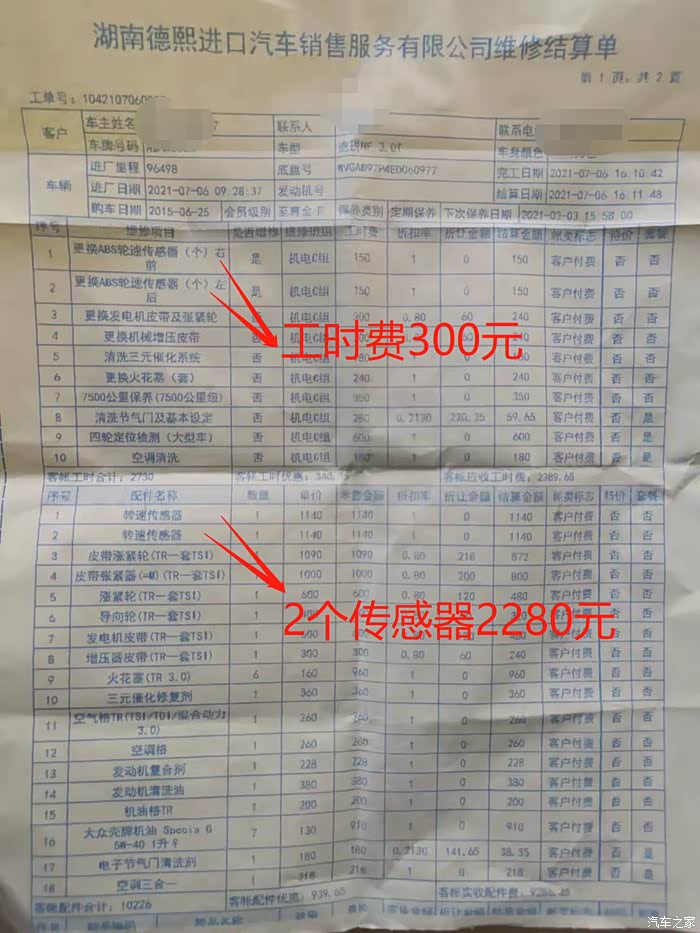 湖南德熙进口汽车销售服务有限公司维修结算单
第 1 页, 共 2 页
工单号: 1042107060
客户 车主姓名 7 联系人 联系电
车牌号码 车型 途锐NF 3.0T 车身颜色
车辆 进厂里程 96498 底盘号 WVGAB97P4ED060977 完工日期 2021-07-06 16:10:42
进厂日期 2021-07-06 09:28:37 发动机号 结算日期 2021-07-06 16:11:48
购车日期 2015-06-25 会员级别 至尊会员 保养类别 定期保养 下次保养日期 2021-03-03 15:58:00
序号 维修项目 是否增修 维修班组 工时费 折扣率 折让金额 结算金额 帐类标志 特价 套餐
1 更换ABS轮速传感器（个）右前 是 机电C组 150 1 0 150 客户付费 否 否
2 更换ABS轮速传感器（个）左后 是 机电C组 150 1 0 150 客户付费 否 否
3 更换发电机皮带及张紧轮 否 机电C组 0.80 60 240 客户付费 否 否
4 更换机械增压皮带 否 机电C组 客户付费 否 否
5 清洗三元催化系统 否 机电C组 客户付费 否 否
工时费300元
6 更换火花塞（套） 否 机电C组 240 1 0 240 客户付费 否 否
7 7500公里保养(7500公里级) 否 机电C组 350 1 0 350 客户付费 否 否
8 清洗节气门及基本设定 否 机电C组 280 0.2130 220.35 59.65 客户付费 否 是
9 四轮定位检测（大型车） 否 机电C组 600 1 0 600 客户付费 否 是
10 空调清洗 否 机电C组 180 1 0 180 客户付费 否 是
客帐工时合计: 2730 客帐工时优惠: 340. 客帐应收工时费: 2389.65
序号 配件名称 数量 单价 零售金额 折扣率 折让金额 结算金额 帐类标志 特价 套餐
1 转速传感器 1 1140 1140 1 0 1140 客户付费 否 否
2 转速传感器 1 1140 1140 1 0 1140 客户付费 否 否
3 皮带涨紧轮(TR一套TSI) 1 1090 1090 0.80 218 872 客户付费 否 否
4 皮带张紧器(=M)(TR一套TSI) 1 1000 1000 0.80 200 800 客户付费 否 否
5 涨紧轮(TR一套TSI) 1 600 600 0.80 120 480 客户付费 否 否
6 导向轮(TR一套TSI) 1 客户付费 否 否
2个传感器2280元
7 发电机皮带(TR一套TSI) 1 600 客户付费 否 否
8 增压器皮带(TR一套TSI) 1 300 300 0.80 60 240 客户付费 否 否
9 火花塞(TR 3.0) 6 160 960 1 0 960 客户付费 否 否
10 三元催化修复剂 1 360 360 1 0 360 客户付费 否 否
11 空气格TR(TSI/TDI/混合动力3.0) 1 260 260 1 0 260 客户付费 否 否
12 空调格 1 260 260 1 0 260 客户付费 否 否
13 发动机复合剂 1 228 228 1 0 228 客户付费 否 否
14 发动机清洗油 1 380 380 1 0 380 客户付费 否 否
15 机油格TR 1 200 200 1 0 200 客户付费 否 否
16 大众壳牌机油 Specia G 5W-40 1升 7 130 910 1 0 910 客户付费 否 否
17 电子节气门清洗剂 1 180 180 0.2130 141.65 38.35 客户付费 否 是
18 空调三合一 1 218 218 1 0 218 客户付费 否 是
客帐配件合计: 10226 客帐配件优惠: 939.65 客帐实收配件费: 9286.35
汽车之家